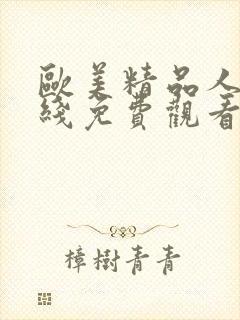 歐美精品人
綫免費觀看
樟樹青青